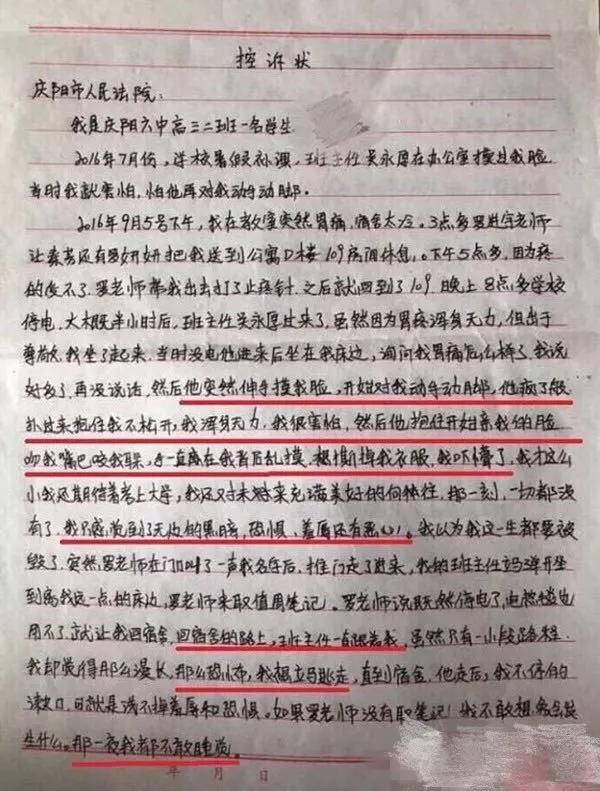 控诉状
庆阳市人民法院:
我是庆阳六中高三二班一名学生
2016年7月份,学校暑假补课,班主任吴永厚在办公室摸过我脸
当时我就害怕,怕他再对我动手动脚。
2016年9月5号下午,我在教室突然胃痛,宿舍太冷。3点多罗进宇老师
让秦芳还有罗妍妍把我送到公寓D楼109房间休息。下午5点多,因为疼
的受不了.罗老师带我出去打了止疼针.之后就回到了109.晚上8点多学校
停电.大概半小时后,班主任吴永厚过来了.虽然因为胃疼浑身无力,但出于
尊敬我坐了起来.当时没电他进来后坐在我床边,询问我胃痛怎么样了.我说
好多了.再没说话,然后他突然伸手摸我脸,开始对我动手动脚,他疯了般
扑过来抱住我不松开,我浑身无力.我很害怕,然后他抱住开始亲我的脸
吻我嘴巴咬我耳朵,手一直在我背后乱摸.想撕掉我衣服,我吓懵了,我才这么
小我还期待着考上大学,我还对未来充满美好的向往.那一刻,一切都没
有了.我只感觉到了无边的黑暗,恐惧、羞辱还有恶心。我以为我这一生都要被
毁了.突然罗老师在门口叫了一声我名字后,推门走了进来,我的班主任立马弹开坐
到离我远一点的床边,罗老师来取值周笔记。罗老师说既然停电了,电热毯也
用不了.就让我回宿舍.回宿舍的路上,班主任一直跟着我,虽然只有一小段路程.
我却觉得那么漫长.那么恐怖,我想立马逃走,直到宿舍.他走后,我不停的
漱口.可就是洗不掉羞辱和恐惧。如果罗老师没有取笔记!我不敢想会发
生什么。那一夜我都不敢睡觉。
年 月 日